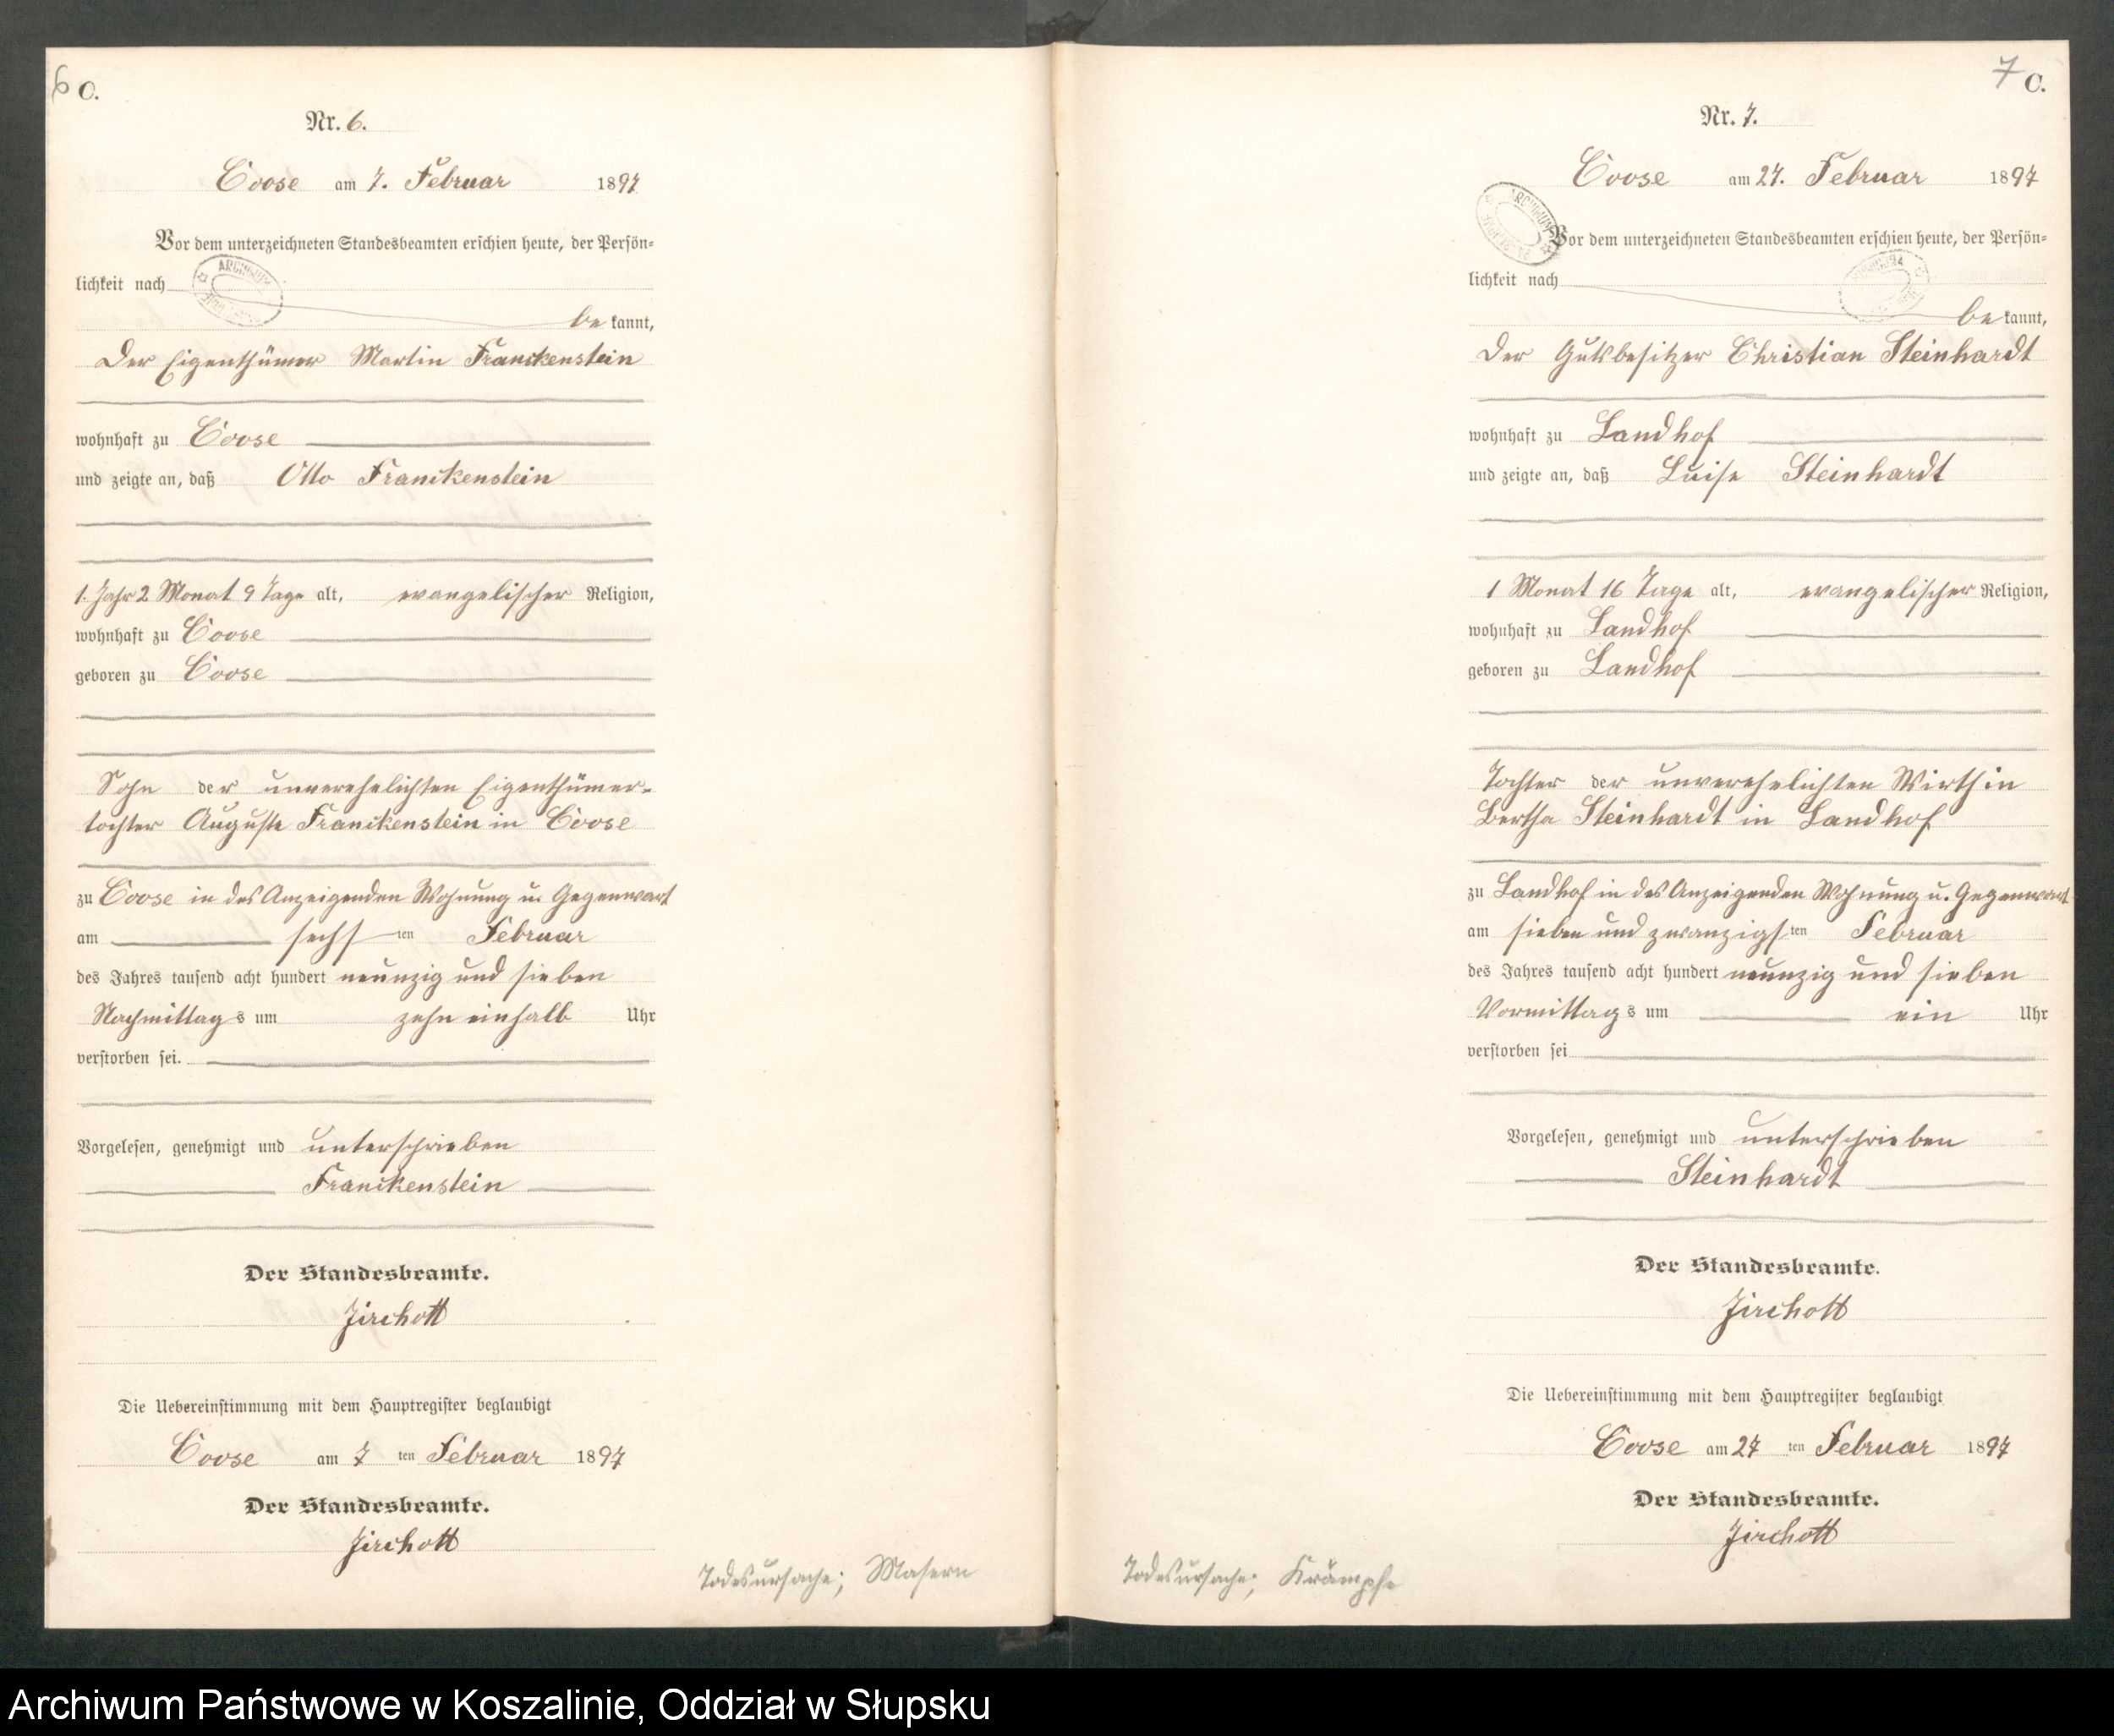 6 C.
Nr. 6.
Coose am 7. Februar 1897
Vor dem unterzeichneten Standesbeamten erschien heute, der Persön=
lichkeit nach
be kannt,
Der Eigenthümer Martin Franckenstein
wohnhaft zu Coose
und zeigte an, daß Otto Franckenstein
1. Jahr 2 Monat 9 Tage alt, evangelischer Religion,
wohnhaft zu Coose
geboren zu Coose
Sohn der unverehelichten Eigenthümer-
tochter Auguste Franckenstein in Coose
zu Coose in des Anzeigenden Wohnung u. Gegenwart
am sechs ten Februar
des Jahres tausend acht hundert neunzig und sieben
Nachmittags um zehn einhalb Uhr
verstorben sei.
Vorgelesen, genehmigt und unterschrieben
Franckenstein
Der Standesbeamte.
Jirchott
Die Uebereinstimmung mit dem Hauptregister beglaubigt
Coose am 7 ten Februar 1897
Der Standesbeamte.
Jirchott
Todesursache; Masern
7 C.
Nr. 7.
Coose am 27. Februar 1897
Vor dem unterzeichneten Standesbeamten erschien heute, der Persön=
lichkeit nach
be kannt,
Der Gutsbesitzer Christian Steinhardt
wohnhaft zu Landhof
und zeigte an, daß Luise Steinhardt
1 Monat 16 Tage alt, evangelischer Religion,
wohnhaft zu Landhof
geboren zu Landhof
Tochter der unverehelichten Wirthin
Bertha Steinhardt in Landhof
zu Landhof in des Anzeigenden Wohnung u. Gegenwart
am sieben und zwanzigs ten Februar
des Jahres tausend acht hundert neunzig und sieben
Vormittags um ein Uhr
verstorben sei
Vorgelesen, genehmigt und unterschrieben
Steinhardt
Der Standesbeamte.
Jirchott
Die Uebereinstimmung mit dem Hauptregister beglaubigt
Coose am 27 ten Februar 1897
Der Standesbeamte.
Jirchott
Todesursache; Krämpfe
Archiwum Państwowe w Koszalinie, Oddział w Słupsku